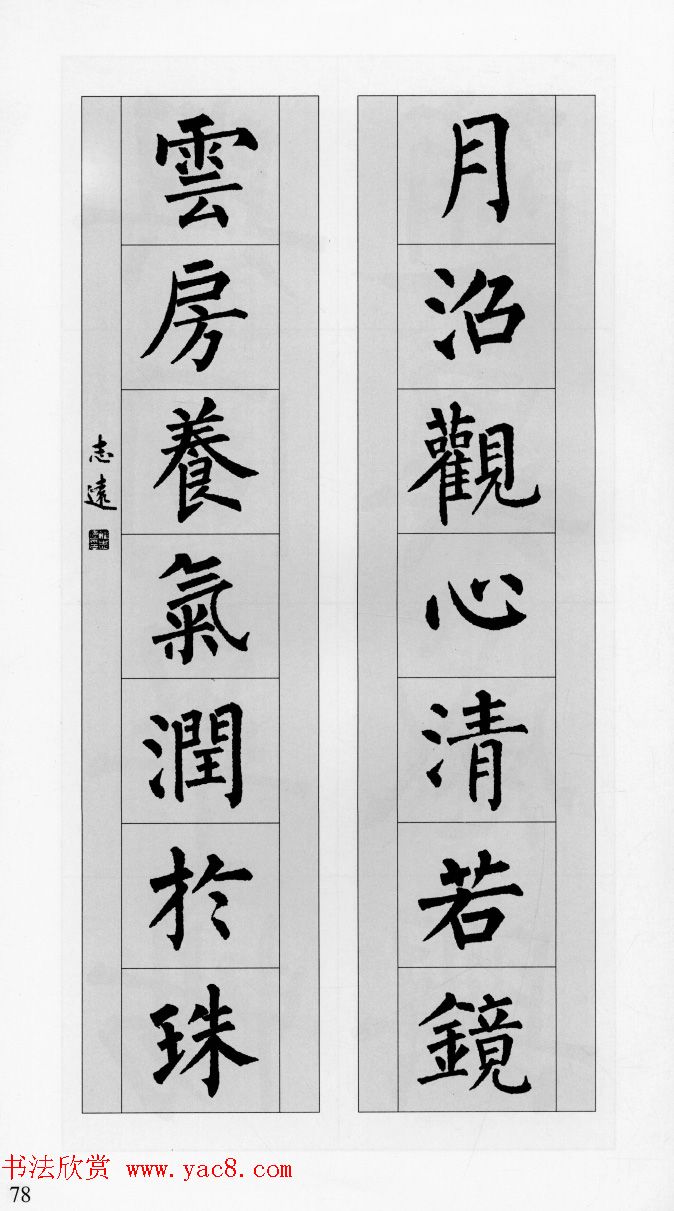 月沼觀心清若鏡
雲房養氣潤於珠
志遠
书法欣赏 www.yac8.com
78